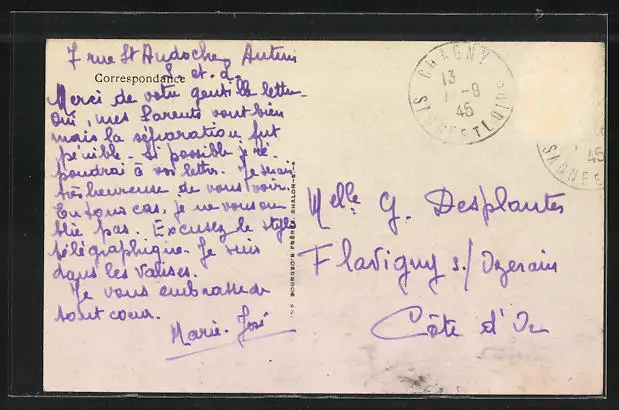 7 rue St Andoche, Autun
S. et. L.
Correspondance
Merci de votre gentille lettre.
Oui, mes Parents vont bien
mais la séparation fut
pénible. Si possible je ré-
pondrai à vos lettres. Je serais
très heureuse de vous voir.
En tous cas, je ne vous ou-
blie pas. Excusez le style
télégraphique. Je suis
dans les valises.
Je vous embrasse de
tout coeur.
Marie-José
BOURGEOIS FRÈRES CHALON-S-S
CHAGNY
13
1-9
45
SAONE ET LOIRE
45
SAONE
Melle G. Desplantes
Flavigny s/ Ozerain
Côte d'Or